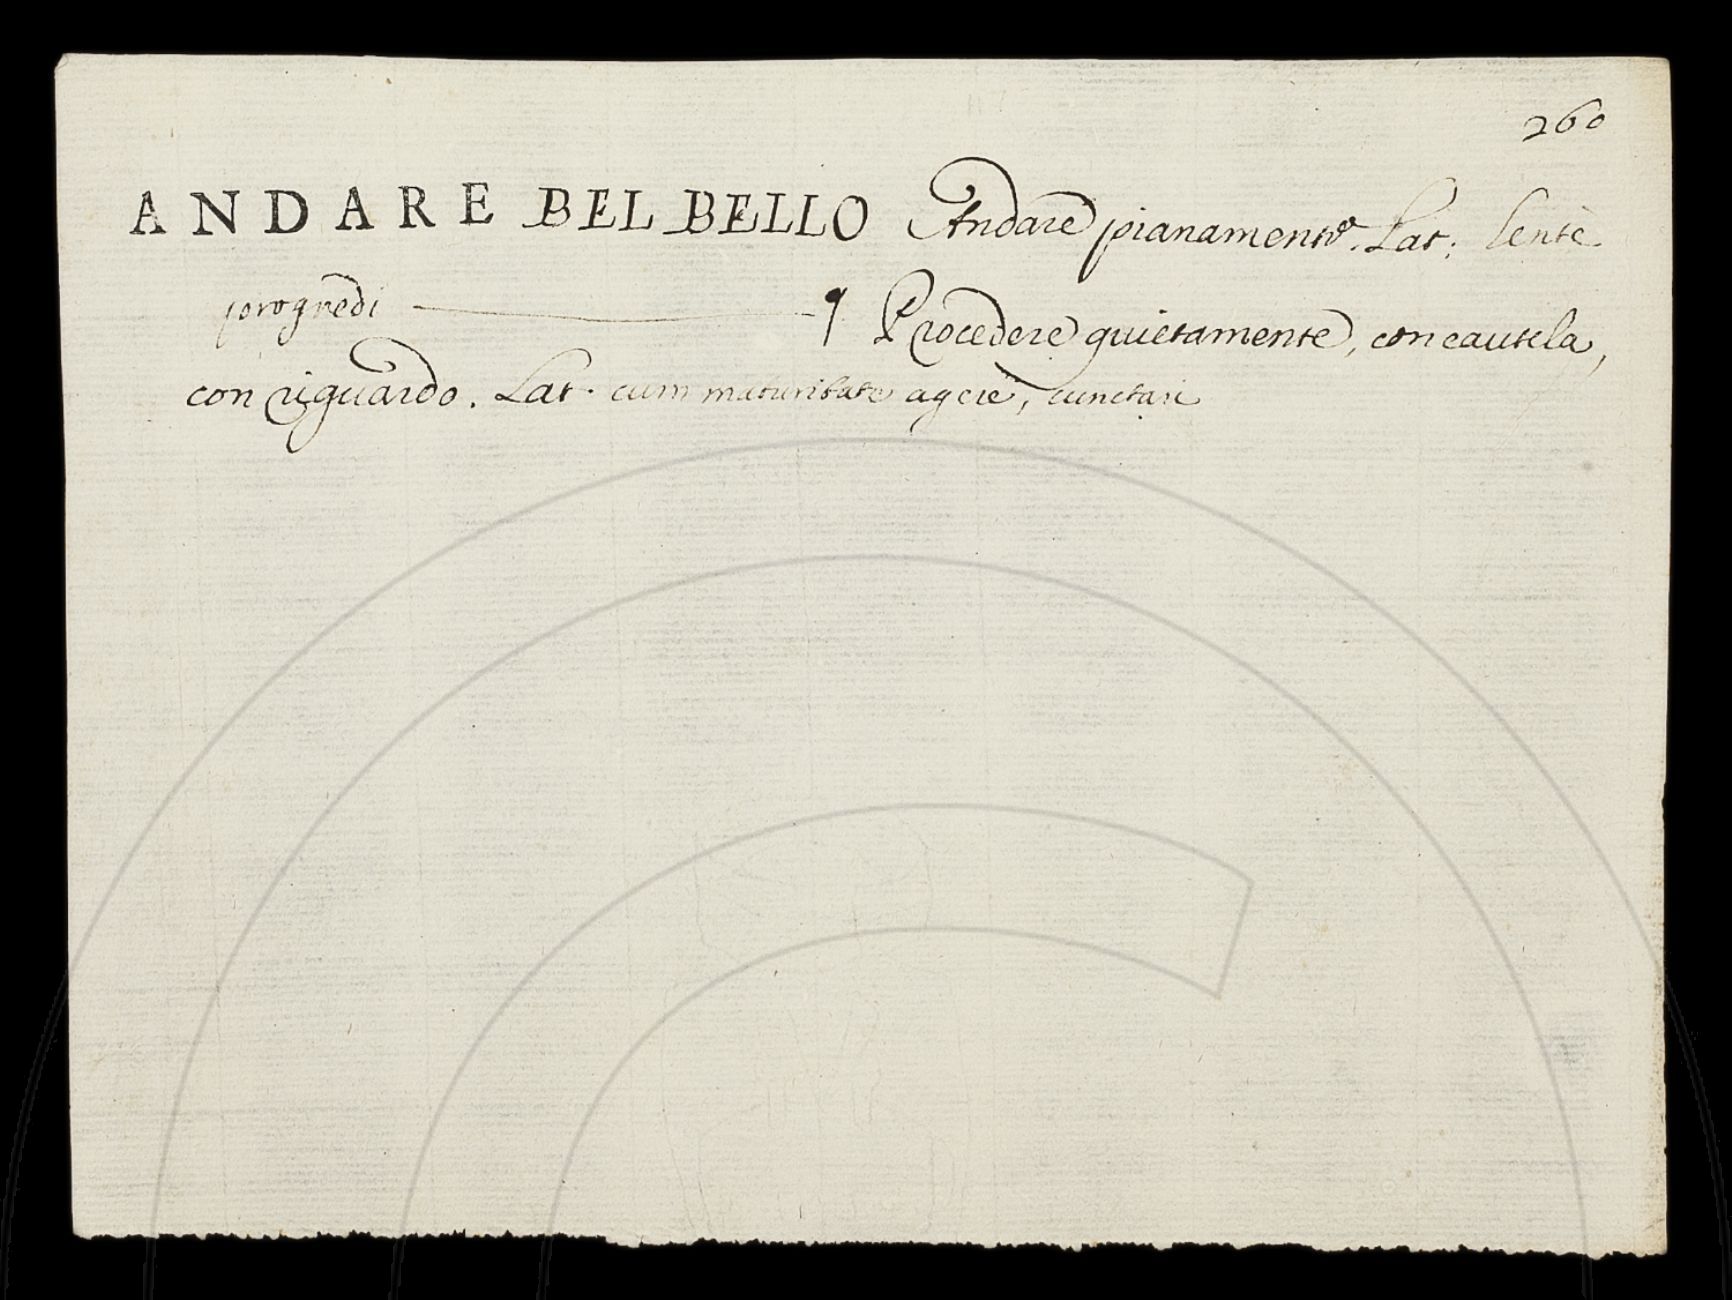 260
ANDARE BEL BELLO Andare pianamente. Lat: lentè
progredi ——— ¶ Procedere quietamente, con cautela,
con riguardo. Lat. cum maturitate agere, cunctari